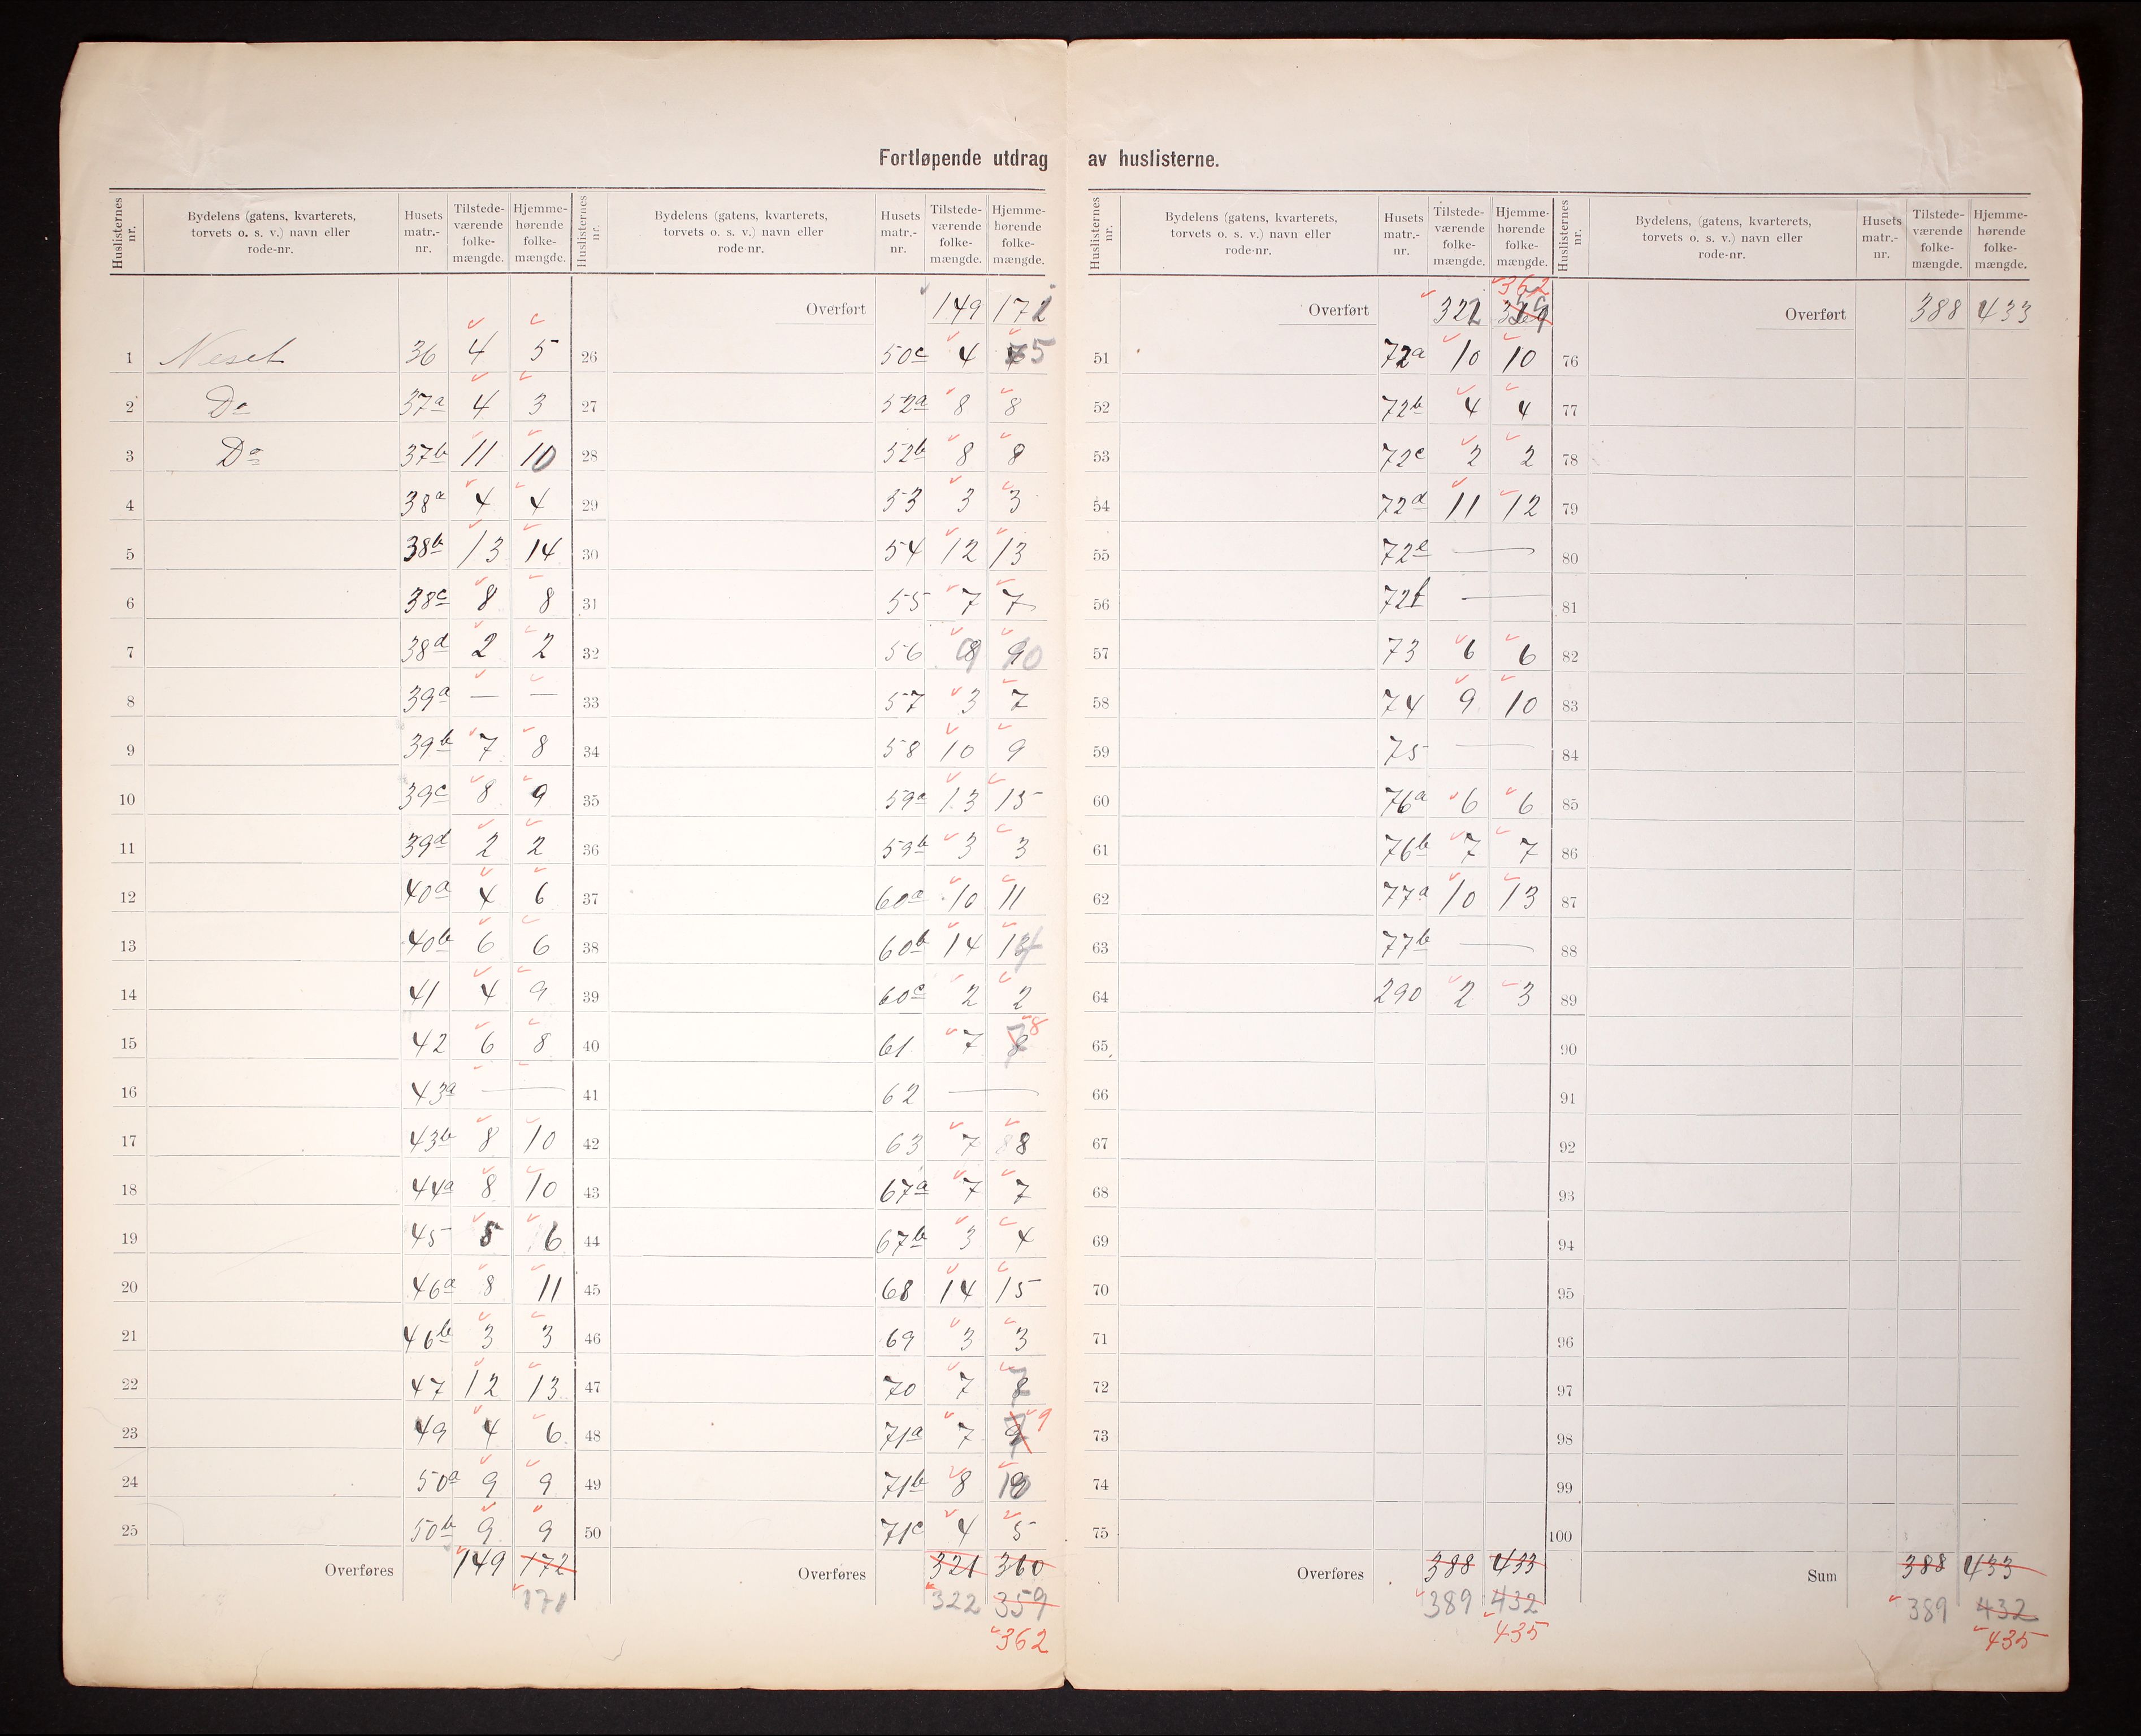 Fortløpende utdrag av huslisterne.
Huslisternes nr. Bydelens (gatens, kvarterets, torvets o. s. v.) navn eller rode-nr. Husets matr.-nr. Tilstede-værende folke-mængde. Hjemme-hørende folke-mængde.
1 Neset 36 4 5
2 Do 37a 4 3
3 Do 37b 11 10
4 38a 4 4
5 38b 13 14
6 38c 8 8
7 38d 2 2
8 39a — —
9 39b 7 8
10 39c 8 9
11 39d 2 2
12 40a 4 6
13 40b 6 6
14 41 4 9
15 42 6 8
16 43a —
17 43b 8 10
18 44a 8 10
19 45 5 6
20 46a 8 11
21 46b 3 3
22 47 12 13
23 49 4 6
24 50a 9 9
25 50b 9 9
Overføres 149 172
171
Huslisternes nr. Bydelens (gatens, kvarterets, torvets o. s. v.) navn eller rode-nr. Husets matr.-nr. Tilstede-værende folke-mængde. Hjemme-hørende folke-mængde.
Overført 149 171
26 50c 4 5
27 52a 8 8
28 52b 8 8
29 53 3 3
30 54 12 13
31 55 7 7
32 56 9 10
33 57 3 7
34 58 10 9
35 59a 13 15
36 59b 3 3
37 60a 10 11
38 60b 14 14
39 60c 2 2
40 61 7 8
41 62 —
42 63 7 8 8
43 67a 7 7
44 67b 3 4
45 68 14 15
46 69 3 3
47 70 7 7
48 71a 7 9
49 71b 8 10
50 71c 4 5
Overføres 321 360
322 359
362
Huslisternes nr. Bydelens (gatens, kvarterets, torvets o. s. v.) navn eller rode-nr. Husets matr.-nr. Tilstede-værende folke-mængde. Hjemme-hørende folke-mængde.
362
Overført 322 359
51 72a 10 10
52 72b 4 4
53 72c 2 2
54 72d 11 12
55 72e —
56 72f —
57 73 6 6
58 74 9 10
59 75 —
60 76a 6 6
61 76b 7 7
62 77a 10 13
63 77b —
64 290 2 3
65
66
67
68
69
70
71
72
73
74
75
Overføres 388 433
389 432
435
Huslisternes nr. Bydelens, (gatens, kvarterets, torvets o. s. v.) navn eller rode-nr. Husets matr.-nr. Tilstede-værende folke-mængde. Hjemme-hørende folke-mængde.
Overført 388 433
76
77
78
79
80
81
82
83
84
85
86
87
88
89
90
91
92
93
94
95
96
97
98
99
100
Sum 388 433
389 432
435